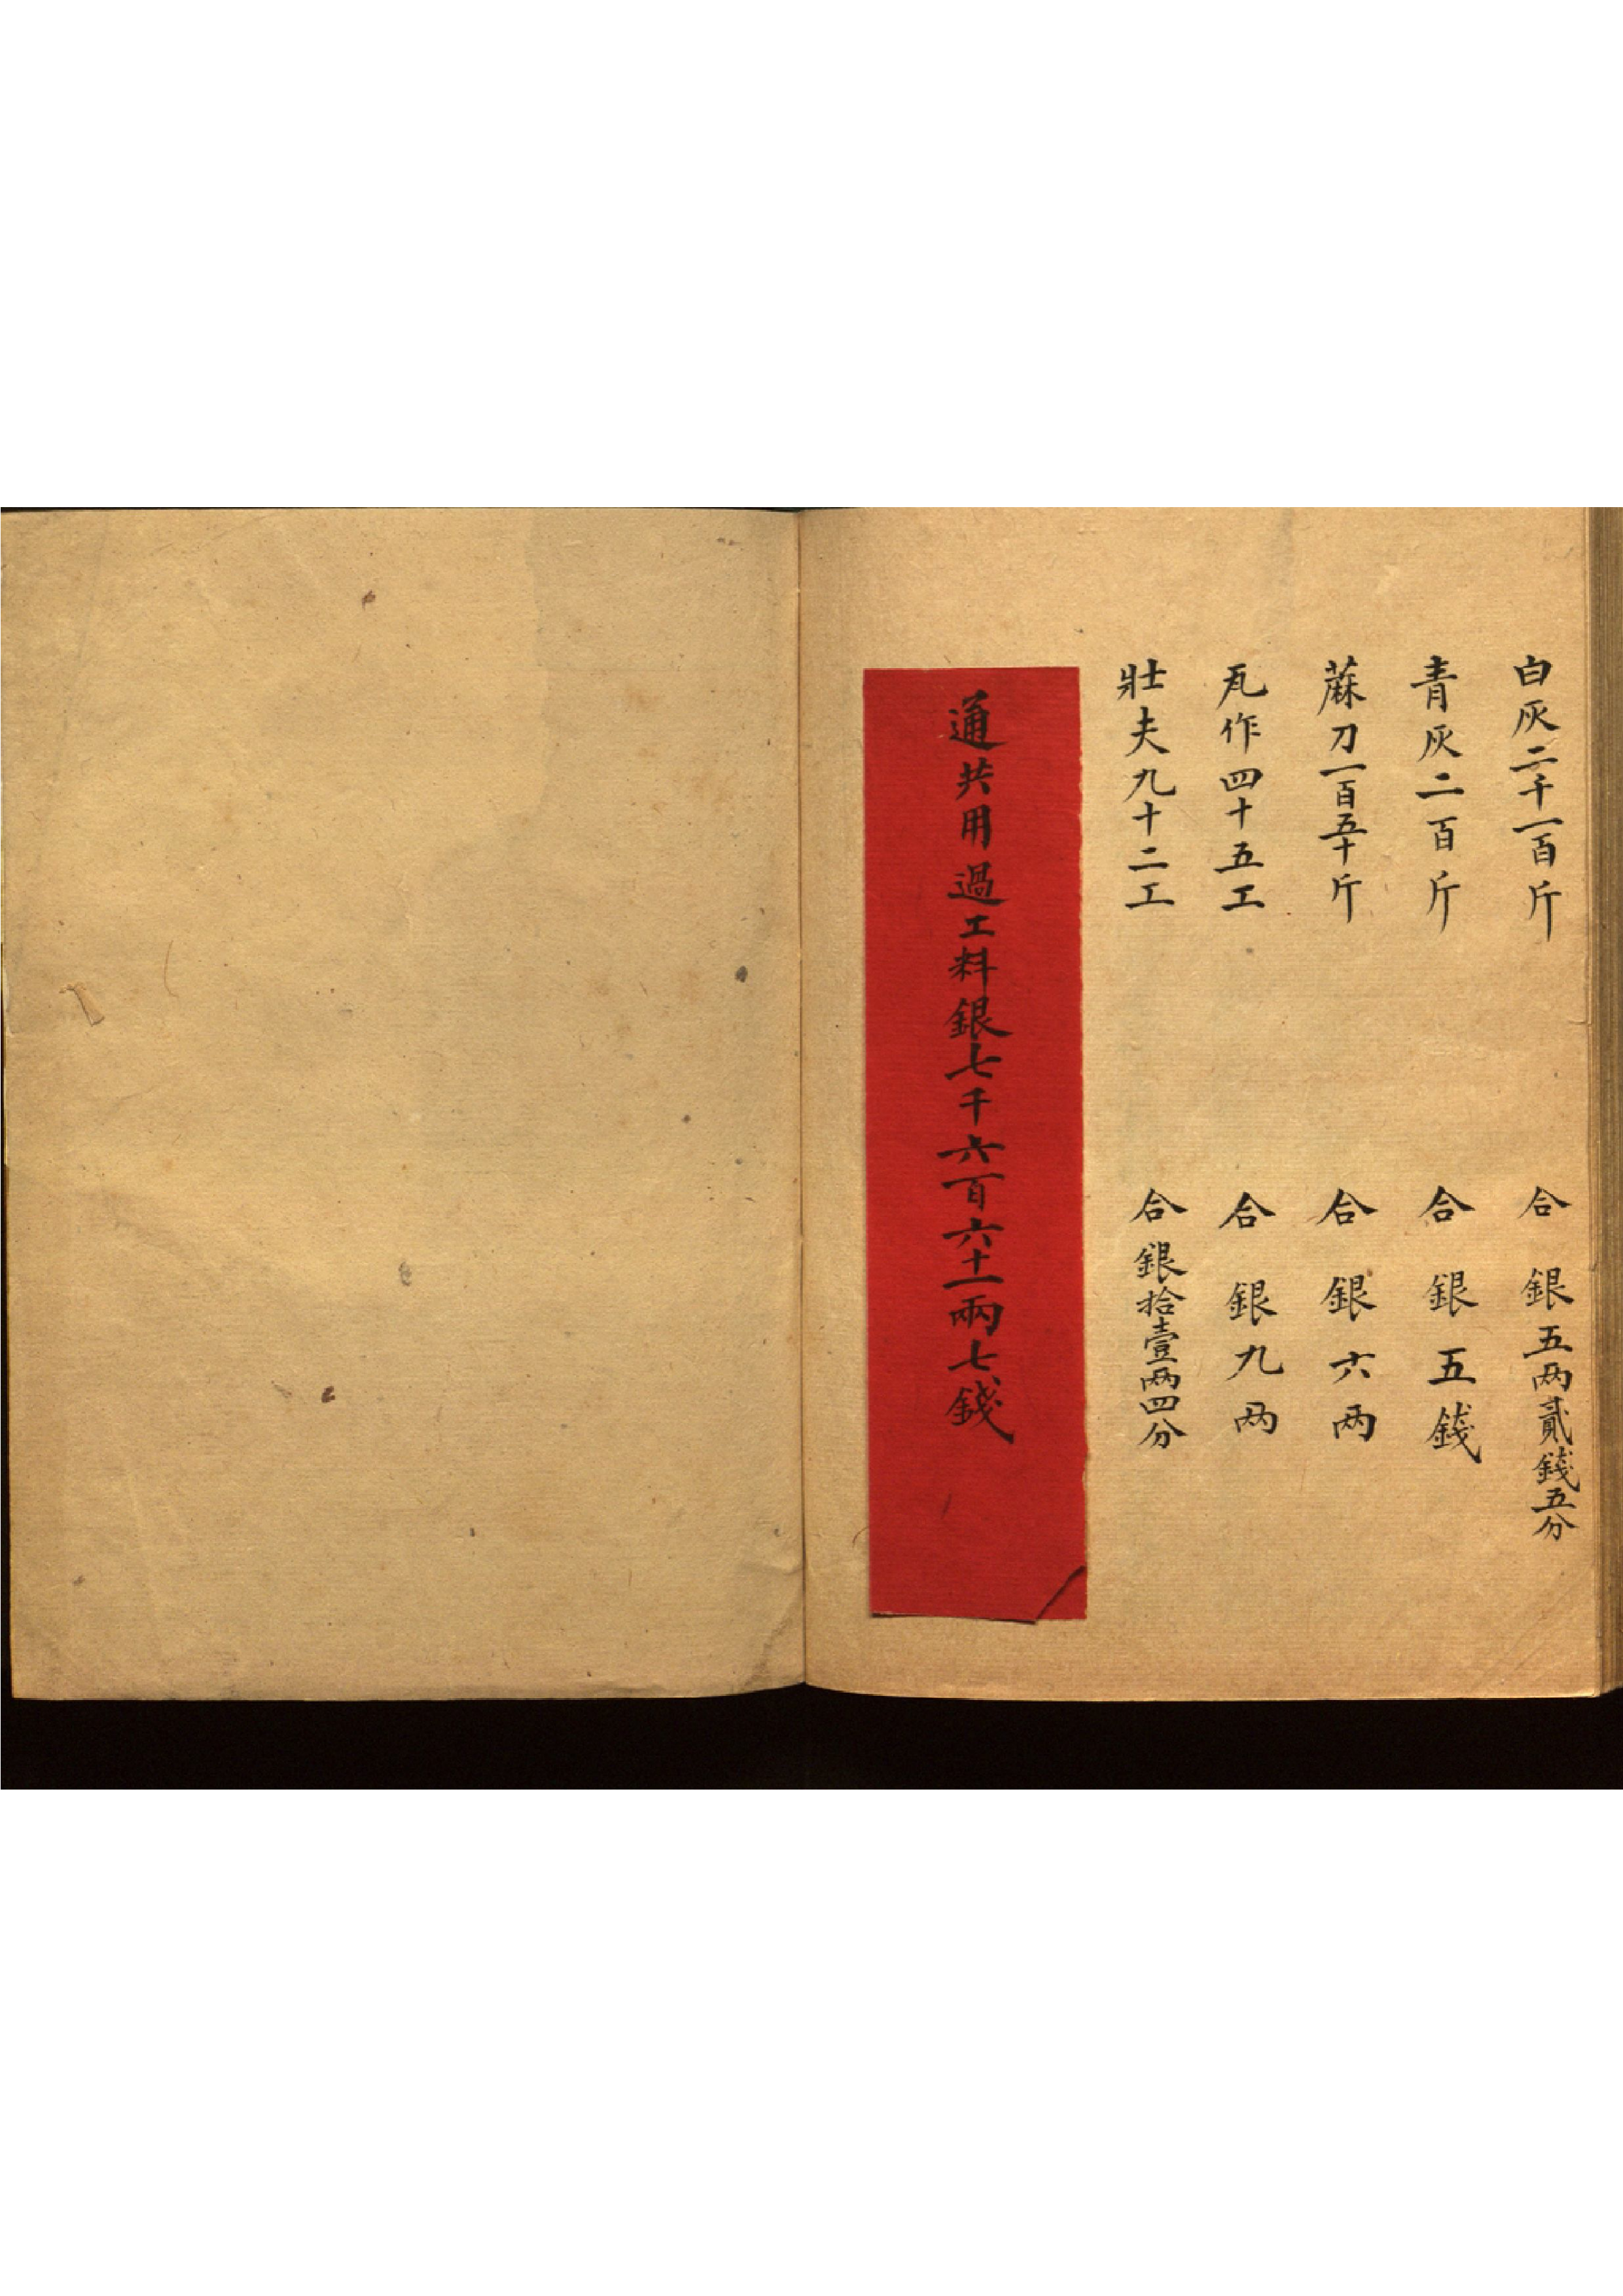 白灰二千一百斤 合銀五两貳錢五分
青灰二百斤 合銀五錢
蔴刀一百五十斤 合銀六两
瓦作四十五工 合銀九两
壯夫九十二工 合銀拾壹两四分
通共用過工料銀七千六百六十一兩七錢